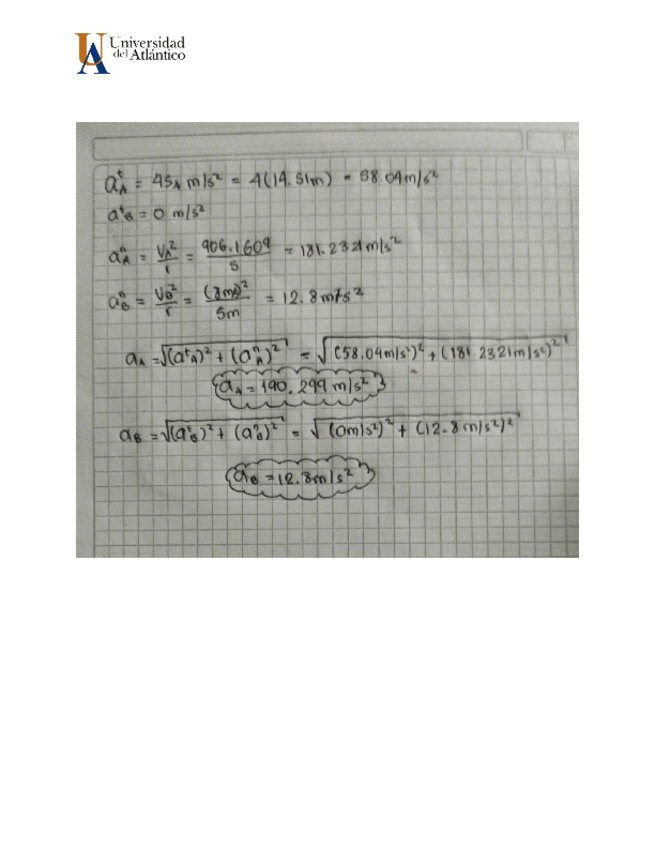 Universidad
del Atlántico
a^t_A = 4S_A m/s² = 4(14.51m) = 58.04m/s²
a^t_B = 0 m/s²
a^n_A = V_A²/r = 906.1609/5 = 181.2321m/s²
a^n_B = V_B²/r = (8m/s)²/5m = 12.8m/s²
a_A = √((a^t_A)² + (a^n_A)²) = √((58.04m/s²)² + (181.2321m/s²)²)
a_A = 190.299m/s²
a_B = √((a^t_B)² + (a^n_B)²) = √((0m/s²)² + (12.8m/s²)²)
a_B = 12.8m/s²